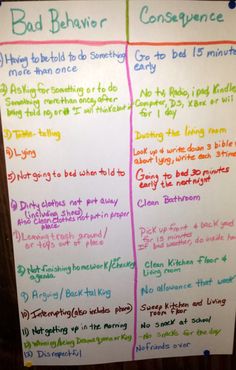 Bad Behavior
Consequence
1) Having to be told to do something
more than once
Go to bed 15 minutes
early
2) Asking for something or to do
something more than once, after
being told no, or I will think about it
No TV, Radio, ipad, Kindle,
Computer, DS, Xbox or Wii
for 1 day
3) Tattle-telling
Dusting the living room
4) Lying
Look up & write down 3 bible
about lying, write each 3 times
5) Not going to bed when told to
Going to bed 30 minutes
early the next night
6) Dirty clothes not put away
(including shoes)
Also clean clothes not put in proper
place
Clean Bathroom
7) Leaving trash around/
or toys out of place
Pick up front & back yard
for 15 minutes
If bad weather, do inside
8) Not finishing homework/or checking
agenda
Clean Kitchen floor &
living room
9) Arguing/Back talking
No allowance that week
10) Interrupting (also includes phone)
Sweep Kitchen and living
room floor
11) Not getting up in the morning
No snack at school
12) Whining/Being
No snacks for the day
13) Disrespectful
No friends over